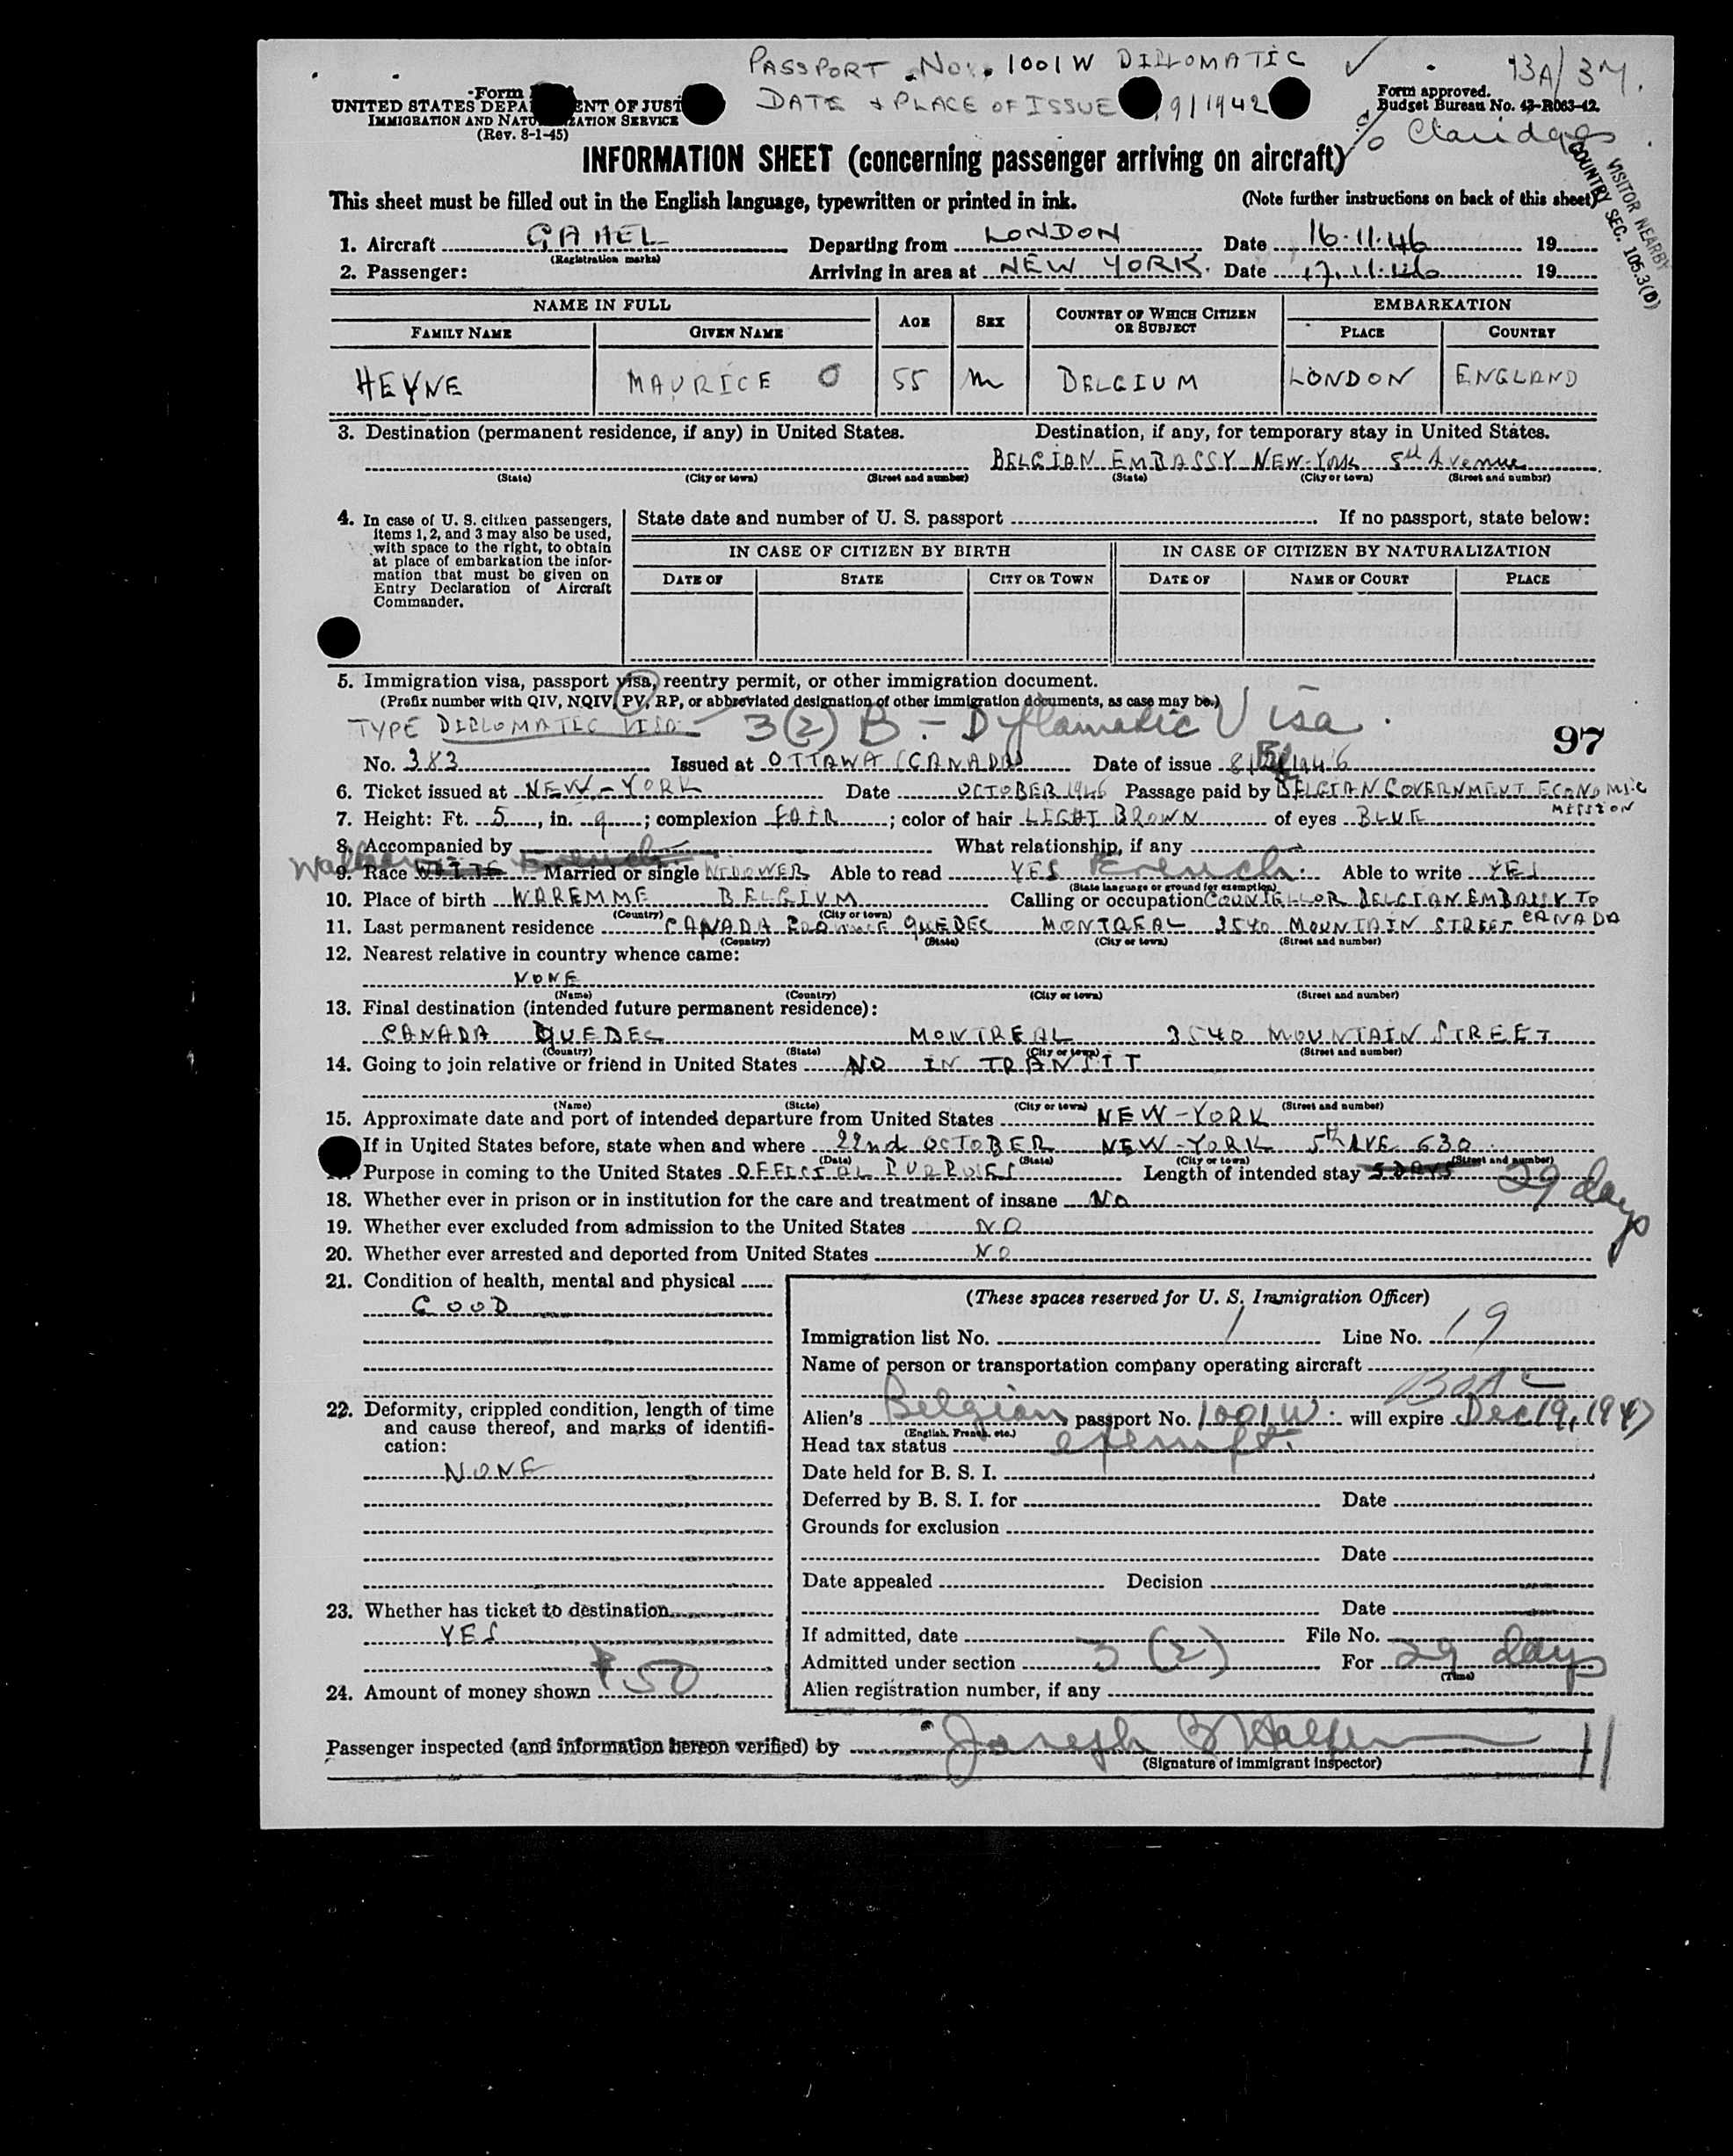 PASSPORT No. 1001W DIPLOMATIC
13A/37.
Form
UNITED STATES DEPA ENT OF JUST
IMMIGRATION AND NATU ZATION SERVICE
(Rev. 8-1-45)
DATE + PLACE OF ISSUE 9/1942
Form approved.
Budget Bureau No. 43-R063-42.
c/o Claridges
INFORMATION SHEET (concerning passenger arriving on aircraft)
VISITOR NEARBY
COUNTRY SEC. 105.3(D)
This sheet must be filled out in the English language, typewritten or printed in ink. (Note further instructions on back of this sheet)
1. Aircraft GAHEL Departing from LONDON Date 16.11.46 19
(Registration marks)
2. Passenger: Arriving in area at NEW YORK. Date 17.11.46 19
NAME IN FULL AGE SEX COUNTRY OF WHICH CITIZEN OR SUBJECT EMBARKATION
FAMILY NAME GIVEN NAME PLACE COUNTRY
HEYNE MAURICE O 55 M BELGIUM LONDON ENGLAND
3. Destination (permanent residence, if any) in United States. Destination, if any, for temporary stay in United States.
BELGIAN EMBASSY NEW-YORK Avenue
(State) (City or town) (Street and number) (State) (City or town) (Street and number)
4. In case of U. S. citizen passengers, items 1, 2, and 3 may also be used, with space to the right, to obtain at place of embarkation the information that must be given on Entry Declaration of Aircraft Commander.
State date and number of U. S. passport If no passport, state below:
IN CASE OF CITIZEN BY BIRTH IN CASE OF CITIZEN BY NATURALIZATION
DATE OF STATE CITY OR TOWN DATE OF NAME OF COURT PLACE
5. Immigration visa, passport visa, reentry permit, or other immigration document.
(Prefix number with QIV, NQIV, PV, RP, or abbreviated designation of other immigration documents, as case may be.)
TYPE DIPLOMATIC VISA 3(2) B - Diplomatic Visa.
97
No. 383 Issued at OTTAWA (CANADA) Date of issue 8 1946
6. Ticket issued at NEW-YORK Date OCTOBER 1946 Passage paid by BELGIAN GOVERNMENT ECONOMIC MISSION
7. Height: Ft. 5, in. 9; complexion FAIR; color of hair LIGHT BROWN of eyes BLUE
8. Accompanied by What relationship, if any
9. Race WHITE Married or single WIDOWER Able to read YES French. Able to write YES
(State language or ground for exemption)
10. Place of birth WAREMME BELGIUM Calling or occupation COUNSELLOR BELGIAN EMBASSY TO CANADA
(Country) (City or town)
11. Last permanent residence CANADA PROVINCE QUEBEC MONTREAL 3540 MOUNTAIN STREET
(Country) (State) (City or town) (Street and number)
12. Nearest relative in country whence came:
NONE
(Name) (Country) (City or town) (Street and number)
13. Final destination (intended future permanent residence):
CANADA QUEBEC MONTREAL 3540 MOUNTAIN STREET
(Country) (State) (City or town) (Street and number)
14. Going to join relative or friend in United States NO IN TRANSIT
(Name) (State) (City or town) (Street and number)
15. Approximate date and port of intended departure from United States NEW-YORK
If in United States before, state when and where 22nd OCTOBER NEW-YORK 5th AVE 630
(Date) (State) (City or town) (Street and number)
Purpose in coming to the United States OFFICIAL PURPOSES Length of intended stay 5 DAYS 29 days
18. Whether ever in prison or in institution for the care and treatment of insane No
19. Whether ever excluded from admission to the United States NO
20. Whether ever arrested and deported from United States NO
21. Condition of health, mental and physical
GOOD
22. Deformity, crippled condition, length of time and cause thereof, and marks of identification:
NONE
23. Whether has ticket to destination
YES
24. Amount of money shown $50
(These spaces reserved for U. S. Immigration Officer)
Immigration list No. 1 Line No. 19
Name of person or transportation company operating aircraft
BOAC
Alien's Belgian passport No. 1001W. will expire Dec 19, 1947
(English, French, etc.)
Head tax status exempt.
Date held for B. S. I.
Deferred by B. S. I. for Date
Grounds for exclusion
Date
Date appealed Decision
Date
If admitted, date File No.
Admitted under section 3 (2) For 29 days
(Time)
Alien registration number, if any
Passenger inspected (and information hereon verified) by Joseph B Halper
(Signature of immigrant inspector)
11